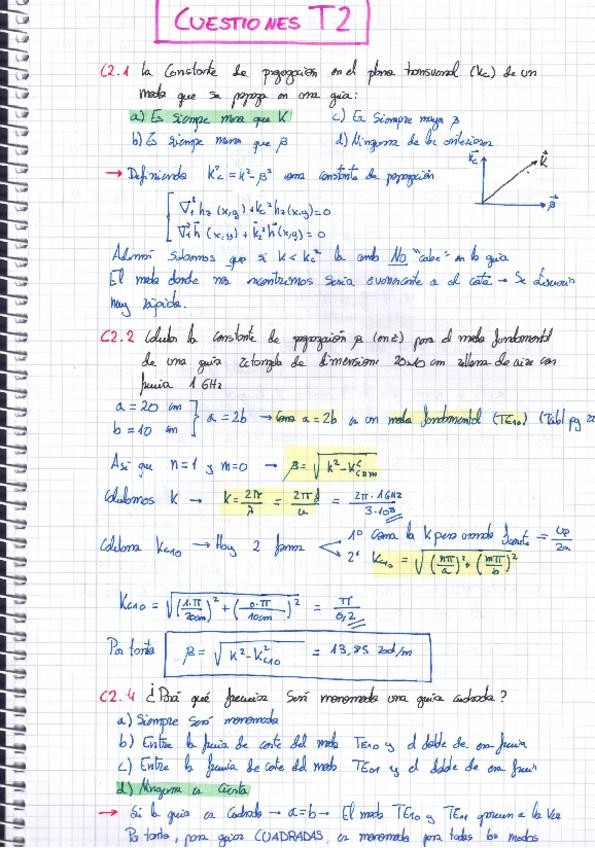 CUESTIONES T2
C2.1 La constante de propagación en el plano transversal (Kc) de un
modo que se propaga en una guía:
a) Es siempre menor que K c) Es siempre mayor β
b) Es siempre menor que β d) Ninguna de las anteriores
→ Definiendo K²c = K² - β² como constante de propagación
Kc K β
∇²t hz (x,y) + kc² hz (x,y) = 0
∇²t h (x,y) + kc² h (x,y) = 0
Además sabemos que si K < Kc² la onda NO "cabe" en la guía
El modo donde nos encontremos sería evanescente o al corte → Se
muy rápida.
C2.2 Calcular la constante de propagación β (en z) para el modo fundamental
de una guía de dimensiones 20x10 cm rellena de aire con
1 GHz
a = 20 cm
b = 10 cm } a = 2b → Como a = 2b es un modo fundamental (TE10) (Tabl pg 22
Así que n=1 y m=0 → β = √(K² - K²c nm)
Calculamos K → K = 2π/λ = 2πf/c = 2π·1GHz/3·10⁸
Calculamos Kc10 → Hay 2 formas
1º Como la K pero usando fcorte = vp/2a
2º Kc10 = √((nπ/a)² + (mπ/b)²)
Kc10 = √((1·π/20cm)² + (0·π/10cm)²) = π/0,2
Por tanto β = √(K² - K²c10) = 13,85 rad/m
C2.4 ¿Para qué frecuencia será monomodo una guía cuadrada?
a) Siempre será monomodo
b) Entre la frecuencia de corte del modo TE10 y el doble de esa
c) Entre la frecuencia de corte del modo TE01 y el doble de esa
d) Ninguna es cierta
→ Si la guía es cuadrada → a=b → El modo TE10 y TE01 aparecen a la vez
Por tanto, para guías CUADRADAS, es monomodo para todos los modos